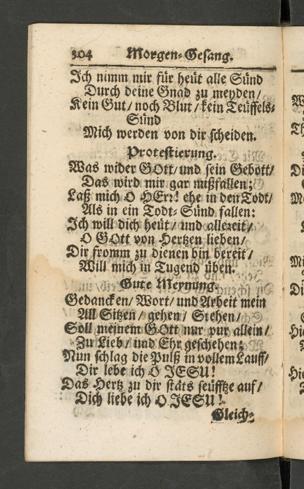 304 Morgen-Gesang.
Ich nimm mir für heüt alle Sünd
Durch deine Gnad zu meyden/
Kein Gut/ noch Blut/ kein Teüffels-
Sünd
Mich werden von dir scheiden.
Protestierung.
Was wider GOtt/ und sein Gebott/
Das wird mir gar mißfallen;
Laß mich O HErr! ehe in den Todt/
Als in ein Todt-Sünd fallen:
Ich will dich heüt/ und allezeit/
O GOtt von Hertzen lieben/
Dir fromm zu dienen bin bereit/
Will mich in Tugend üben.
Gute Meynung.
Gedancken/ Wort/ und Arbeit mein
All Sitzen/ gehen/ Stehen/
Soll meinem GOtt nur pur allein/
Zu Lieb/ und Ehr geschehen;
Nun schlag die Pulß in vollem Lauff/
Dir lebe ich O JESU!
Das Hertz zu dir stäts seüfftze auf/
Dich liebe ich O JESU!
Gleich-